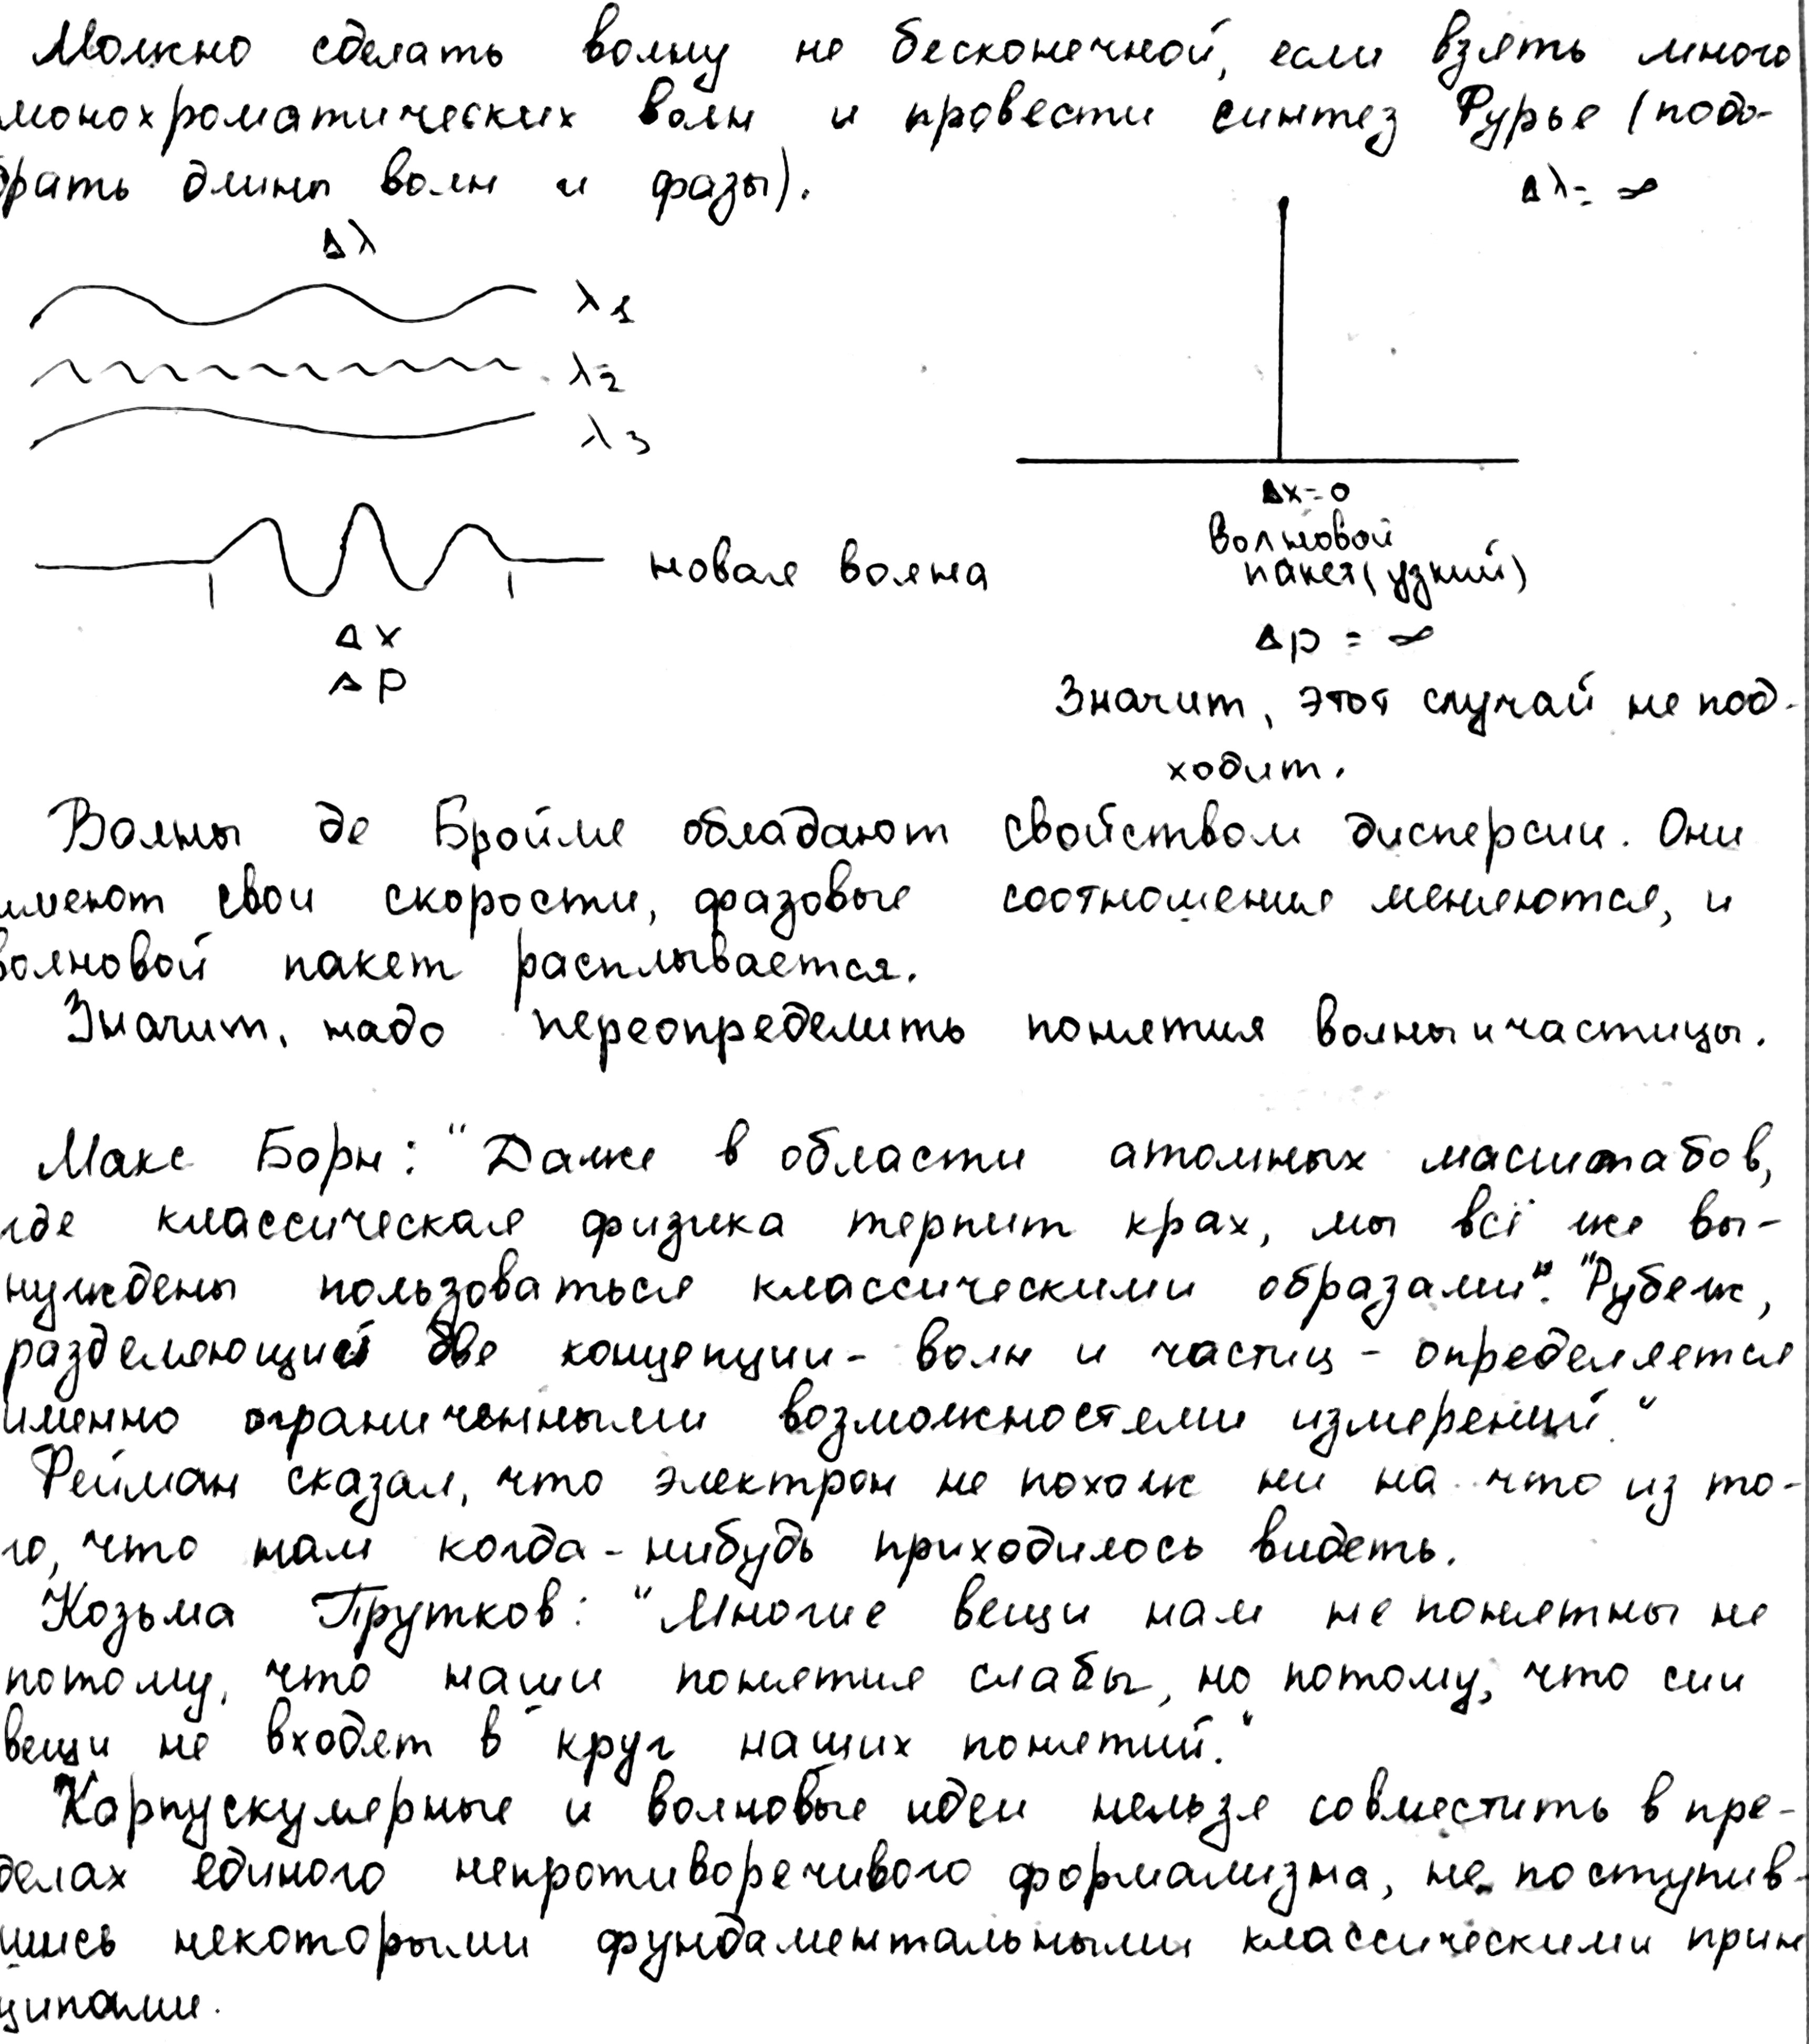 Можно сделать волну не бесконечной, если взять много
монохроматических волн и провести синтез Фурье (подо-
брать длины волн и фазы).
Δλ = ∞
Δλ
λ1
λ2
λ3
Δx=0
волновой
новая волна
пакет (узкий)
Δx
Δp = ∞
Δp
Значит, этот случай не под-
ходит.
Волны де Бройля обладают свойством дисперсии. Они
имеют свои скорости, фазовые соотношения меняются, и
волновой пакет расплывается.
Значит, надо переопределить понятия волны и частицы.
Макс Борн: "Даже в области атомных масштабов,
где классическая физика терпит крах, мы всё же вы-
нуждены пользоваться классическими образами". "Рубеж,
разделяющий две концепции - волн и частиц - определяется
именно ограниченными возможностями измерений."
Фейман сказал, что электрон не похож ни на что из то-
го, что нам когда-нибудь приходилось видеть.
Козьма Прутков: "Многие вещи нам не понятны не
потому, что наши понятия слабы, но потому, что сии
вещи не входят в круг наших понятий."
Корпускулярные и волновые идеи нельзя совместить в пре-
делах единого непротиворечивого формализма, не поступив-
шись некоторыми фундаментальными классическими прин
ципами.